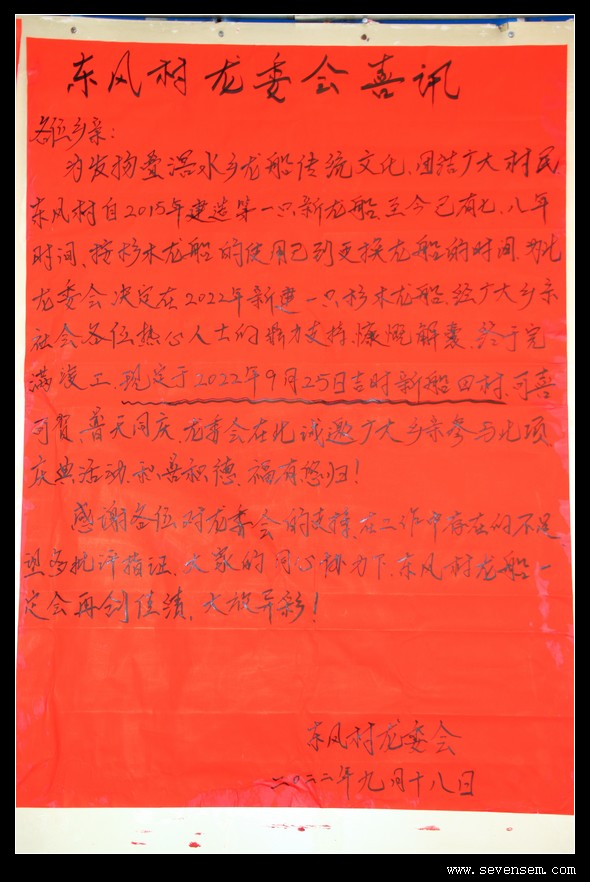 东风村龙委会喜讯
各位乡亲：
为发扬叠滘水乡龙船传统文化、团结广大村民
东风村自2015年建造第一只新龙船至今已有七、八年
时间、按杉木龙船的使用已到更换龙船的时间、为此
龙委会决定在2022年新建一只杉木龙船、经广大乡亲
社会各位热心人士的鼎力支持、慷慨解囊、终于完
满竣工、现定于2022年9月25日吉时新船回村、可喜
可贺、普天同庆、龙委会在此诚邀广大乡亲参与此项
庆典活动、积善积德、福有悠归！
感谢各位对龙委会的支持、在工作中存在的不足
望多批评指证、大家的同心协力下、东风村龙船一
定会再创佳绩、大放异彩！
东风村龙委会
二〇二二年九月十八日
www.sevensem.com